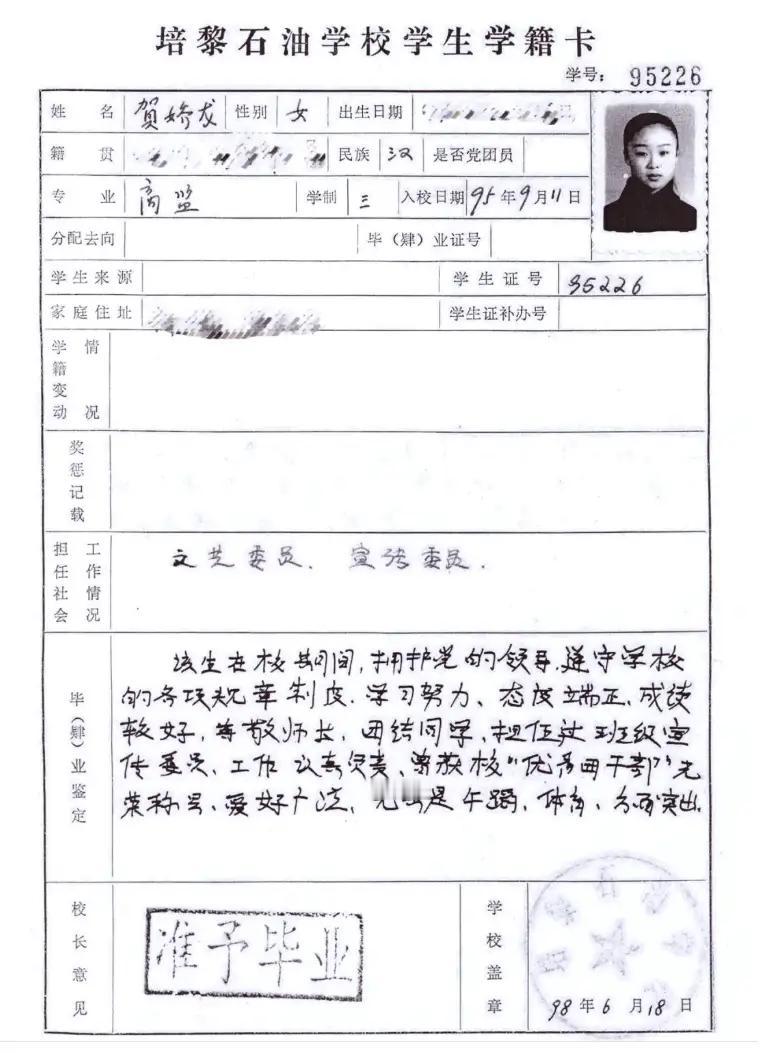 培黎石油学校学生学籍卡
学号： 95226
姓 名 賀娇龙 性别 女 出生日期
籍 贯 民族 汉 是否党团员
专 业 商监 学制 三 入校日期 95年9月11日
分配去向 毕（肄）业证号
学生来源 学生证号 95226
家庭住址 学生证补办号
学籍变动情况
奖惩记载
担任社会工作情况 文艺委员、宣传委员.
毕（肄）业鉴定
该生在校期间，拥护党的领导.遵守学校
的各项规章制度.学习努力、态度端正，成绩
较好，尊敬师长，团结同学，担任过班级宣
传委员、工作认真负责、曾获校“优秀团干部”光
荣称号、爱好广泛，尤其是午蹈、体育、方面突出.
校长意见 准予毕业 学校盖章
98年6月18日